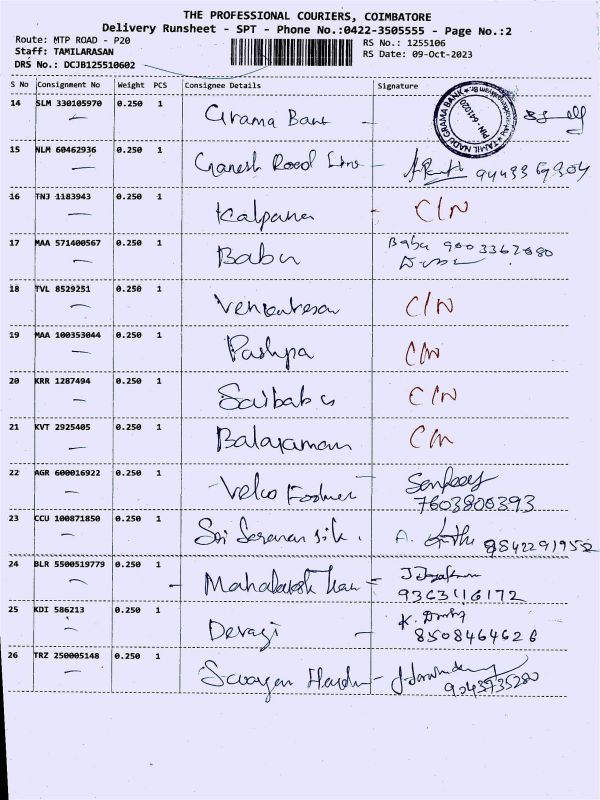 THE PROFESSIONAL COURIERS, COIMBATORE
Delivery Runsheet - SPT - Phone No.:0422-3505555 - Page No.:2
Route: MTP ROAD - P20
RS No.: 1255106
Staff: TAMILARASAN
RS Date: 09-Oct-2023
DRS No.: DCJB125510602
S No Consignment No Weight PCS Consignee Details Signature
14 SLM 330105970 0.250 1 Grama Bank
TAMIL NADU GRAMA BANK
PIN - 641020
15 NLM 60462936 0.250 1 Ganesh Road Line - 9443369304
16 TNJ 1183943 0.250 1 Kalpana - C/N
17 MAA 571400567 0.250 1 Babu Babu 9003362080
18 TVL 8529251 0.250 1 Venkatesan C/N
19 MAA 100353044 0.250 1 Pashpa C/N
20 KRR 1287494 0.250 1 Saibaba C/N
21 KVT 2925405 0.250 1 Balayaman C/N
22 AGR 600016922 0.250 1 Velco - 
7603800393
23 CCU 100871850 0.250 1 Sri Saravan silk. A. 9842291952
24 BLR 5500519779 0.250 1 -
9363116172
25 KDI 586213 0.250 1 Devagi - K.
8508464626
26 TRZ 250005148 0.250 1 -
9043735280